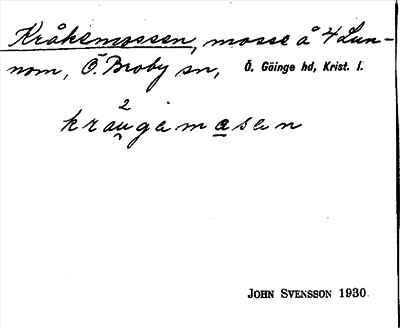 Kråkemossen, mosse å 4 Lun-
nom, Ö. Broby sn, Ö. Göinge hd, Krist. l.
2
krau̯gəmo̲sən
JOHN SVENSSON 1930.